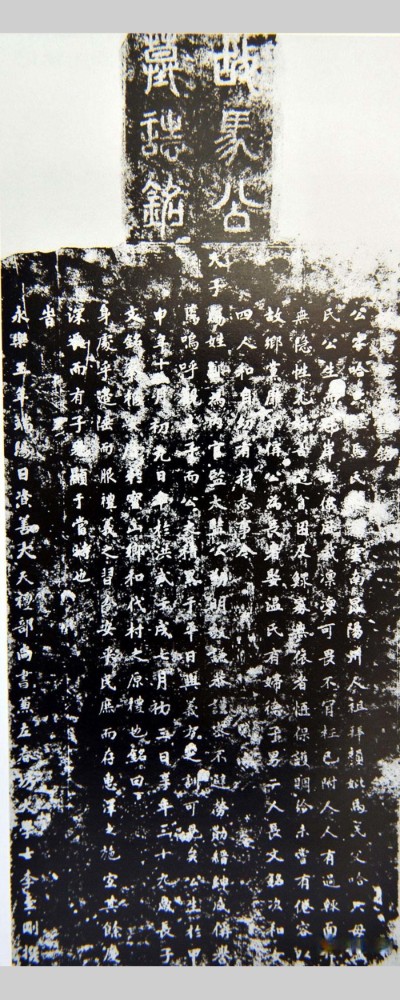 故馬公
墓誌銘
銘
公字哈只姓馬氏世為雲南昆陽州人祖拜顏妣馬氏父哈只母溫
氏公生而魁岸奇偉風裁凜凜可畏不肯枉己附人人有過輒面斥
無隱性尤好善遇貧困及鰥寡無依者恆保護賙給未嘗有倦容以
故鄉黨靡不稱公為長者娶溫氏有婦德子男二人長文銘次和女
四人和自幼有材志事今
天子賜姓鄭為內官監太監公勤明敏謙恭謹密不避勞勩縉紳咸稱譽
焉嗚呼觀其子而公之積累于平日與義方之訓可見矣公生於甲
申年十二月初九日卒於洪武壬戌七月初三日享年三十九歲長子
文銘奉柩安厝於寶山鄉和代村之原禮也銘曰
身處乎邊陲而服禮義之習分安乎民庶而存惠澤之施宜其餘慶
深長而有子光顯于當時也
旹
永樂三年端陽日資善大夫禮部尚書兼左春坊大學士李至剛撰